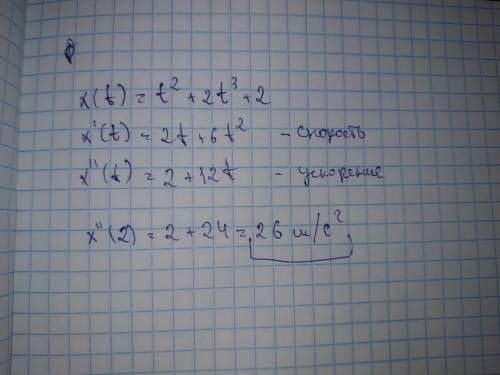 x(t) = t² + 2t³ + 2
x'(t) = 2t + 6t² - скорость
x''(t) = 2 + 12t - ускорение
x''(2) = 2 + 24 = 26 м/с²